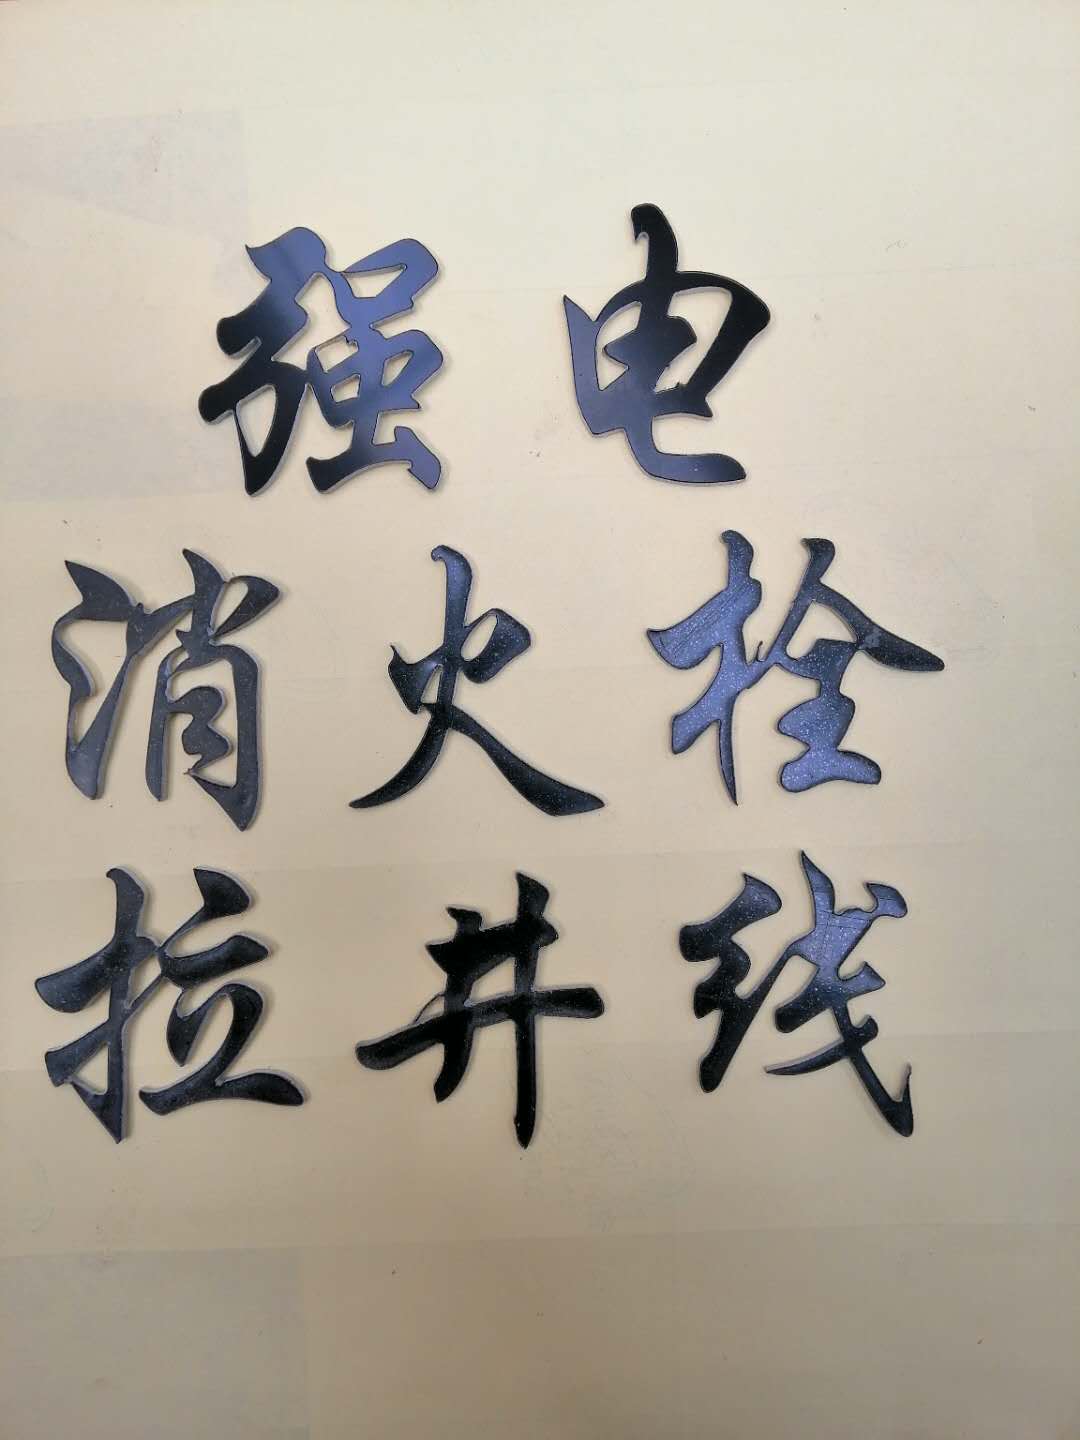 强电
消火栓
拉井线